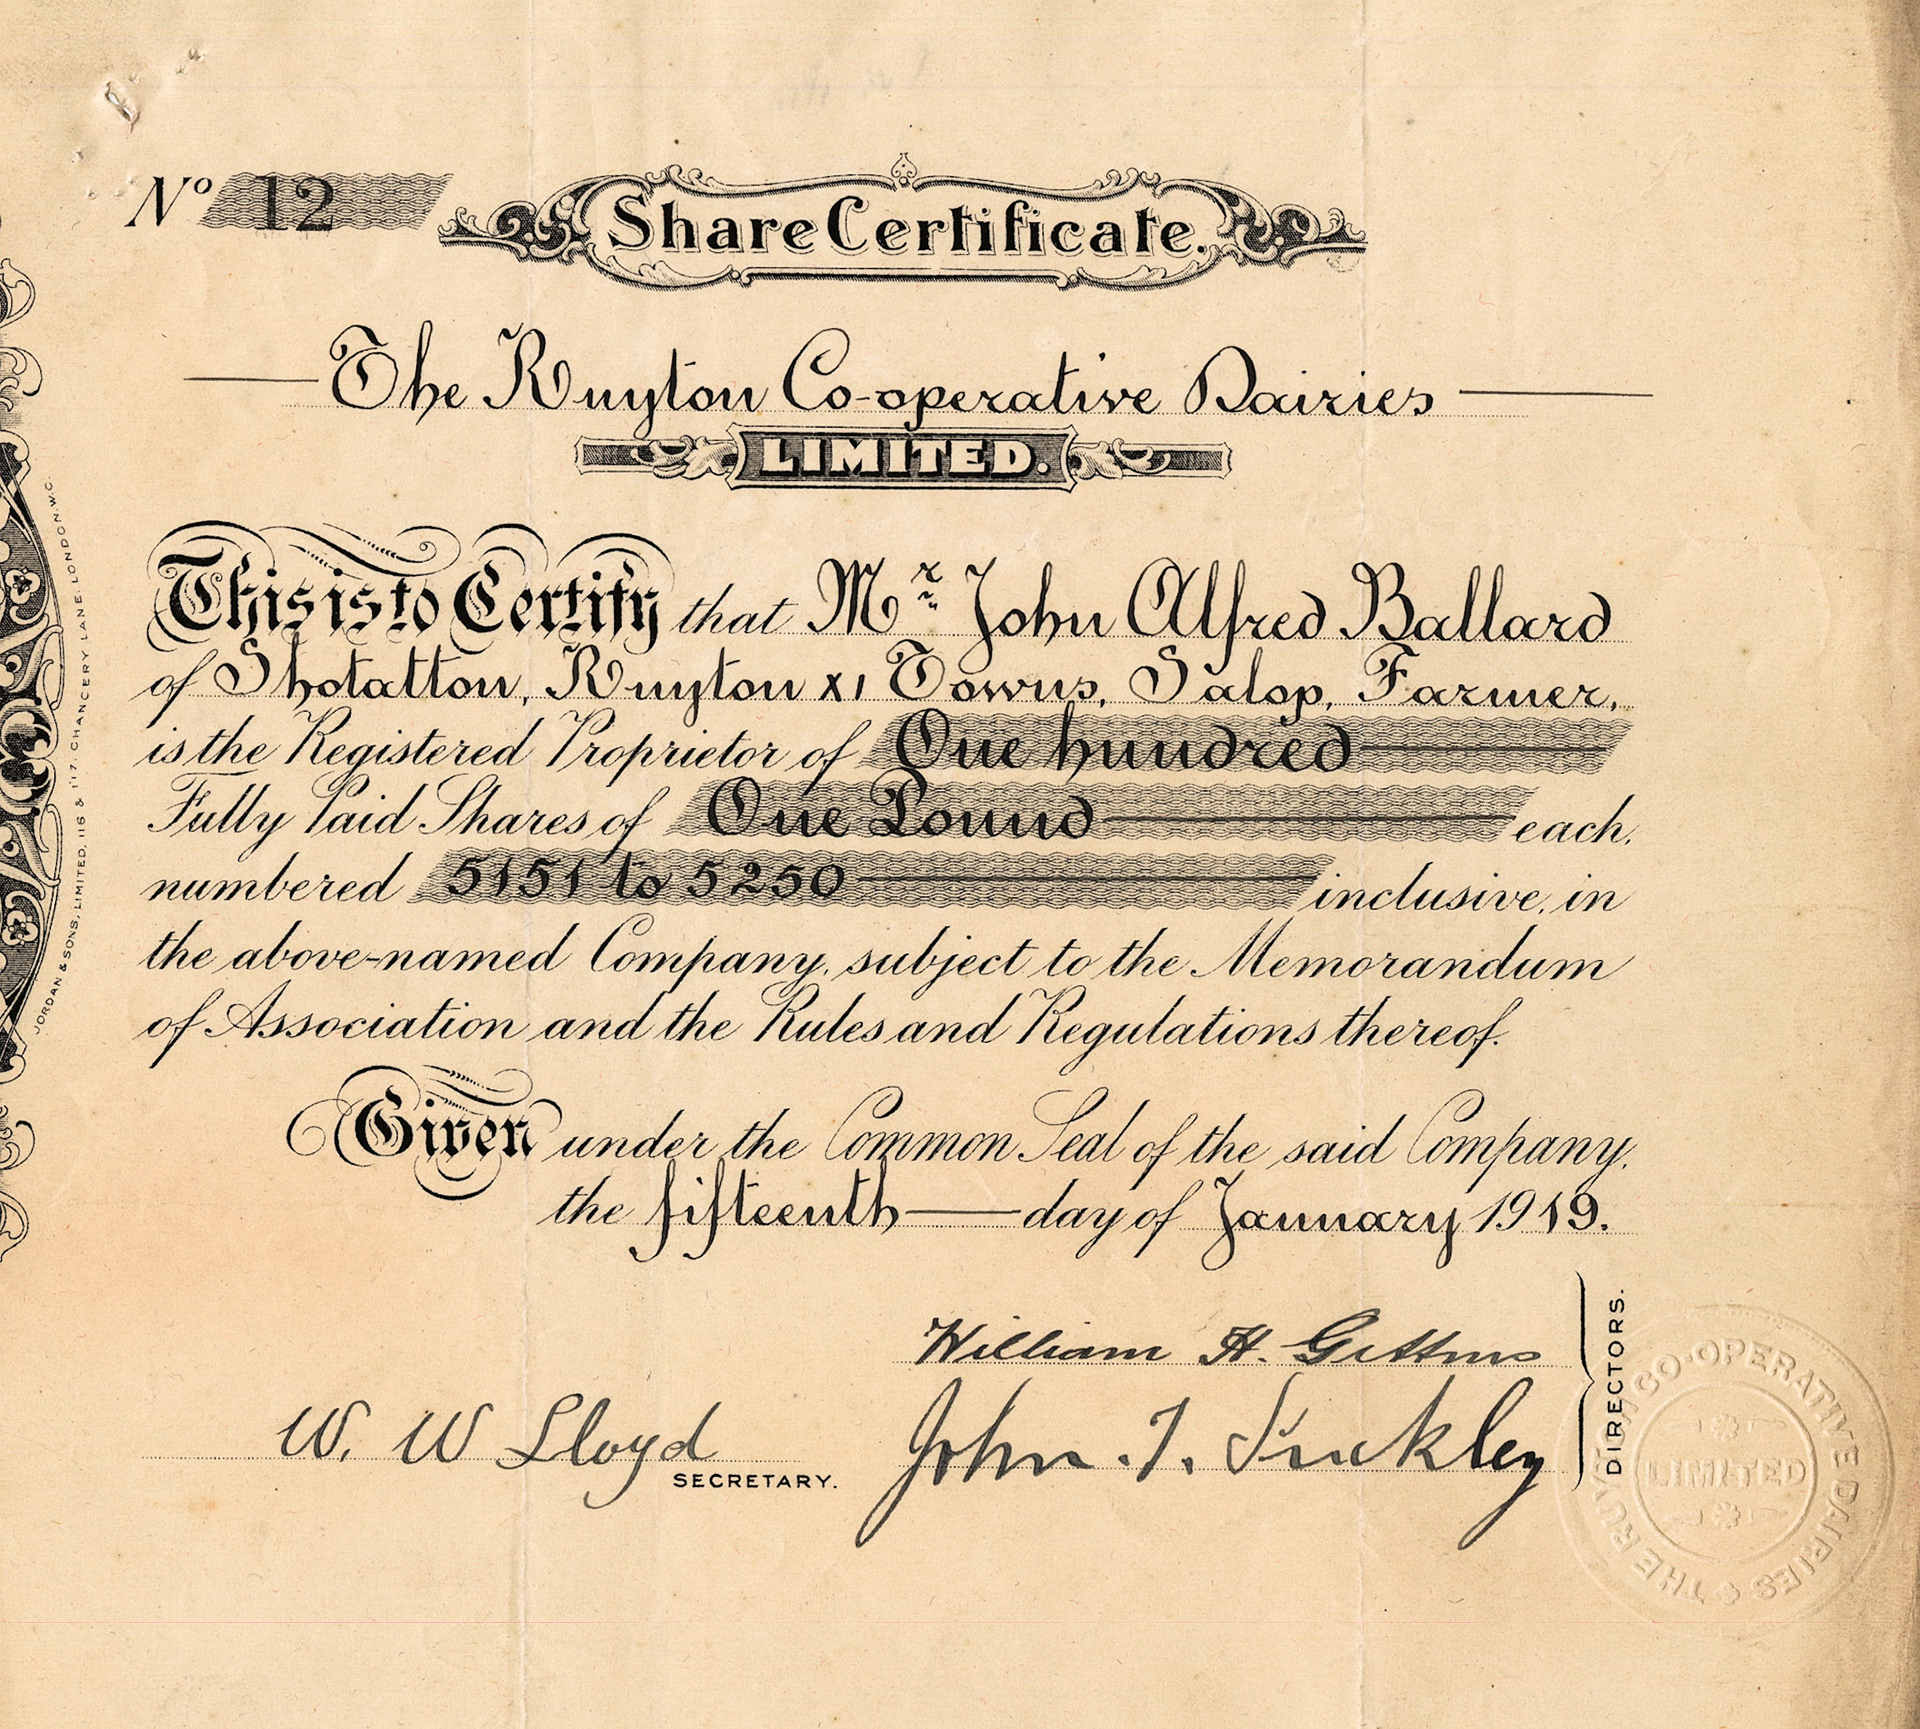 Nº 12
Share Certificate.
The Ruyton Co-operative Dairies
LIMITED.
This is to Certify that Mr John Alfred Ballard
of Shotatton, Ruyton XI Towns, Salop, Farmer,
is the Registered Proprietor of One hundred
Fully Paid Shares of One Pound each,
numbered 5151 to 5250 inclusive, in
the above-named Company, subject to the Memorandum
of Association and the Rules and Regulations thereof.
Given under the Common Seal of the said Company,
the fifteenth day of January 1919.
William H. Gittins
W. W Lloyd
SECRETARY.
John T.
DIRECTORS.
THE RUYTON CO-OPERATIVE DAIRIES
LIMITED
JORDAN & SONS, LIMITED, 116 & 117, CHANCERY LANE, LONDON, W.C.